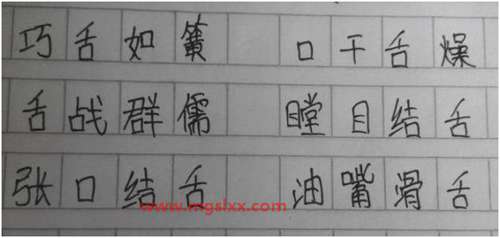 巧舌如簧 口干舌燥
舌战群儒 瞠目结舌
张口结舌 油嘴滑舌
www.mgslxx.com